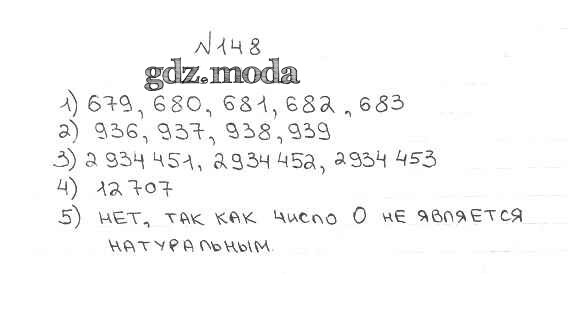 №148
gdz.moda
1) 679, 680, 681, 682, 683
2) 936, 937, 938, 939
3) 2934451, 2934452, 2934453
4) 12707
5) НЕТ, ТАК КАК ЧИСЛО 0 НЕ ЯВЛЯЕТСЯ
НАТУРАЛЬНЫМ.